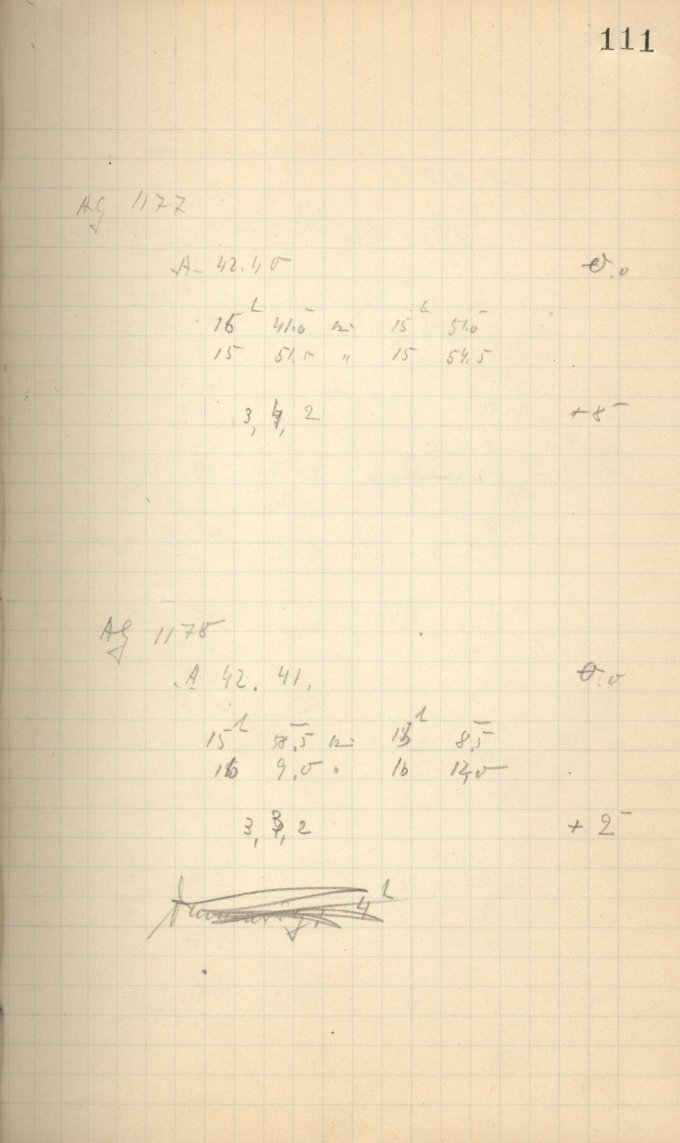 111
AG 1177
A 42.40 0.0
15 h 41.0 bis 15 h 51.0
15 51.5 " 15 54.5
3, 4, 2 + 8
AG 1178
A 42. 41. 0.0
15 h 58.5 bis 16 h 8.5
16 9.0 " 16 12.0
3, 3, 2 + 2
4 h